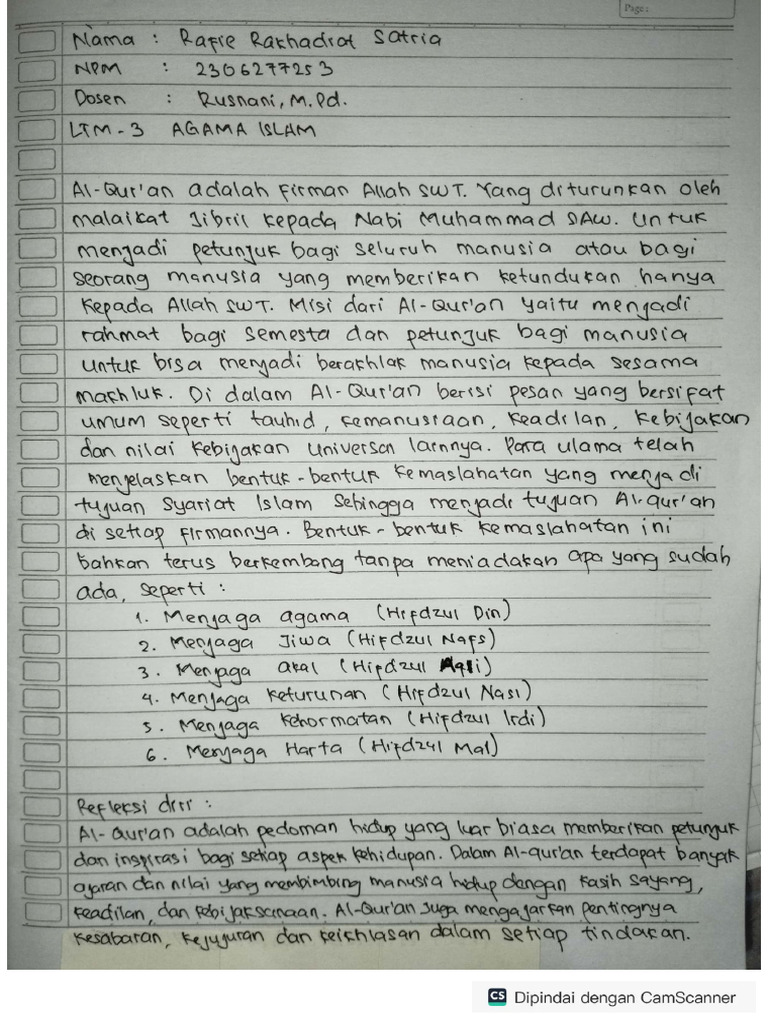 Page:
Nama : Rafie Rakhadiat Satria
NPM : 2306277253
Dosen : Rusnani, M.Pd.
LTM-3 AGAMA ISLAM
Al-Qur'an adalah firman Allah SWT. Yang diturunkan oleh
malaikat Jibril kepada Nabi Muhammad SAW. Untuk
menjadi petunjuk bagi seluruh manusia atau bagi
seorang manusia yang memberikan ketundukan hanya
kepada Allah SWT. Misi dari Al-Qur'an yaitu menjadi
rahmat bagi semesta dan petunjuk bagi manusia
untuk bisa menjadi berakhlak manusia kepada sesama
makhluk. Di dalam Al-Qur'an berisi pesan yang bersifat
umum seperti tauhid, kemanusiaan, keadilan, kebijakan
dan nilai kebijakan universal lainnya. Para ulama telah
menjelaskan bentuk-bentuk kemaslahatan yang menjadi
tujuan Syariat Islam Sehingga menjadi tujuan Al-qur'an
di setiap firmannya. Bentuk-bentuk kemaslahatan ini
bahkan terus berkembang tanpa meniadakan apa yang sudah
ada, seperti :
1. Menjaga agama (Hifdzul Din)
2. Menjaga Jiwa (Hifdzul Nafs)
3. Menjaga akal (Hifdzul Aqli)
4. Menjaga keturunan (Hifdzul Nasl)
5. Menjaga kehormatan (Hifdzul Irdi)
6. Menjaga Harta (Hifdzul Mal)
Refleksi diri :
Al-Qur'an adalah pedoman hidup yang luar biasa memberikan petunjuk
dan inspirasi bagi setiap aspek kehidupan. Dalam Al-qur'an terdapat banyak
ajaran dan nilai yang membimbing manusia hidup dengan kasih sayang,
keadilan, dan kebijaksanaan. Al-Qur'an Juga mengajarkan pentingnya
kesabaran, kejujuran dan keikhlasan dalam setiap tindakan.
CS Dipindai dengan CamScanner